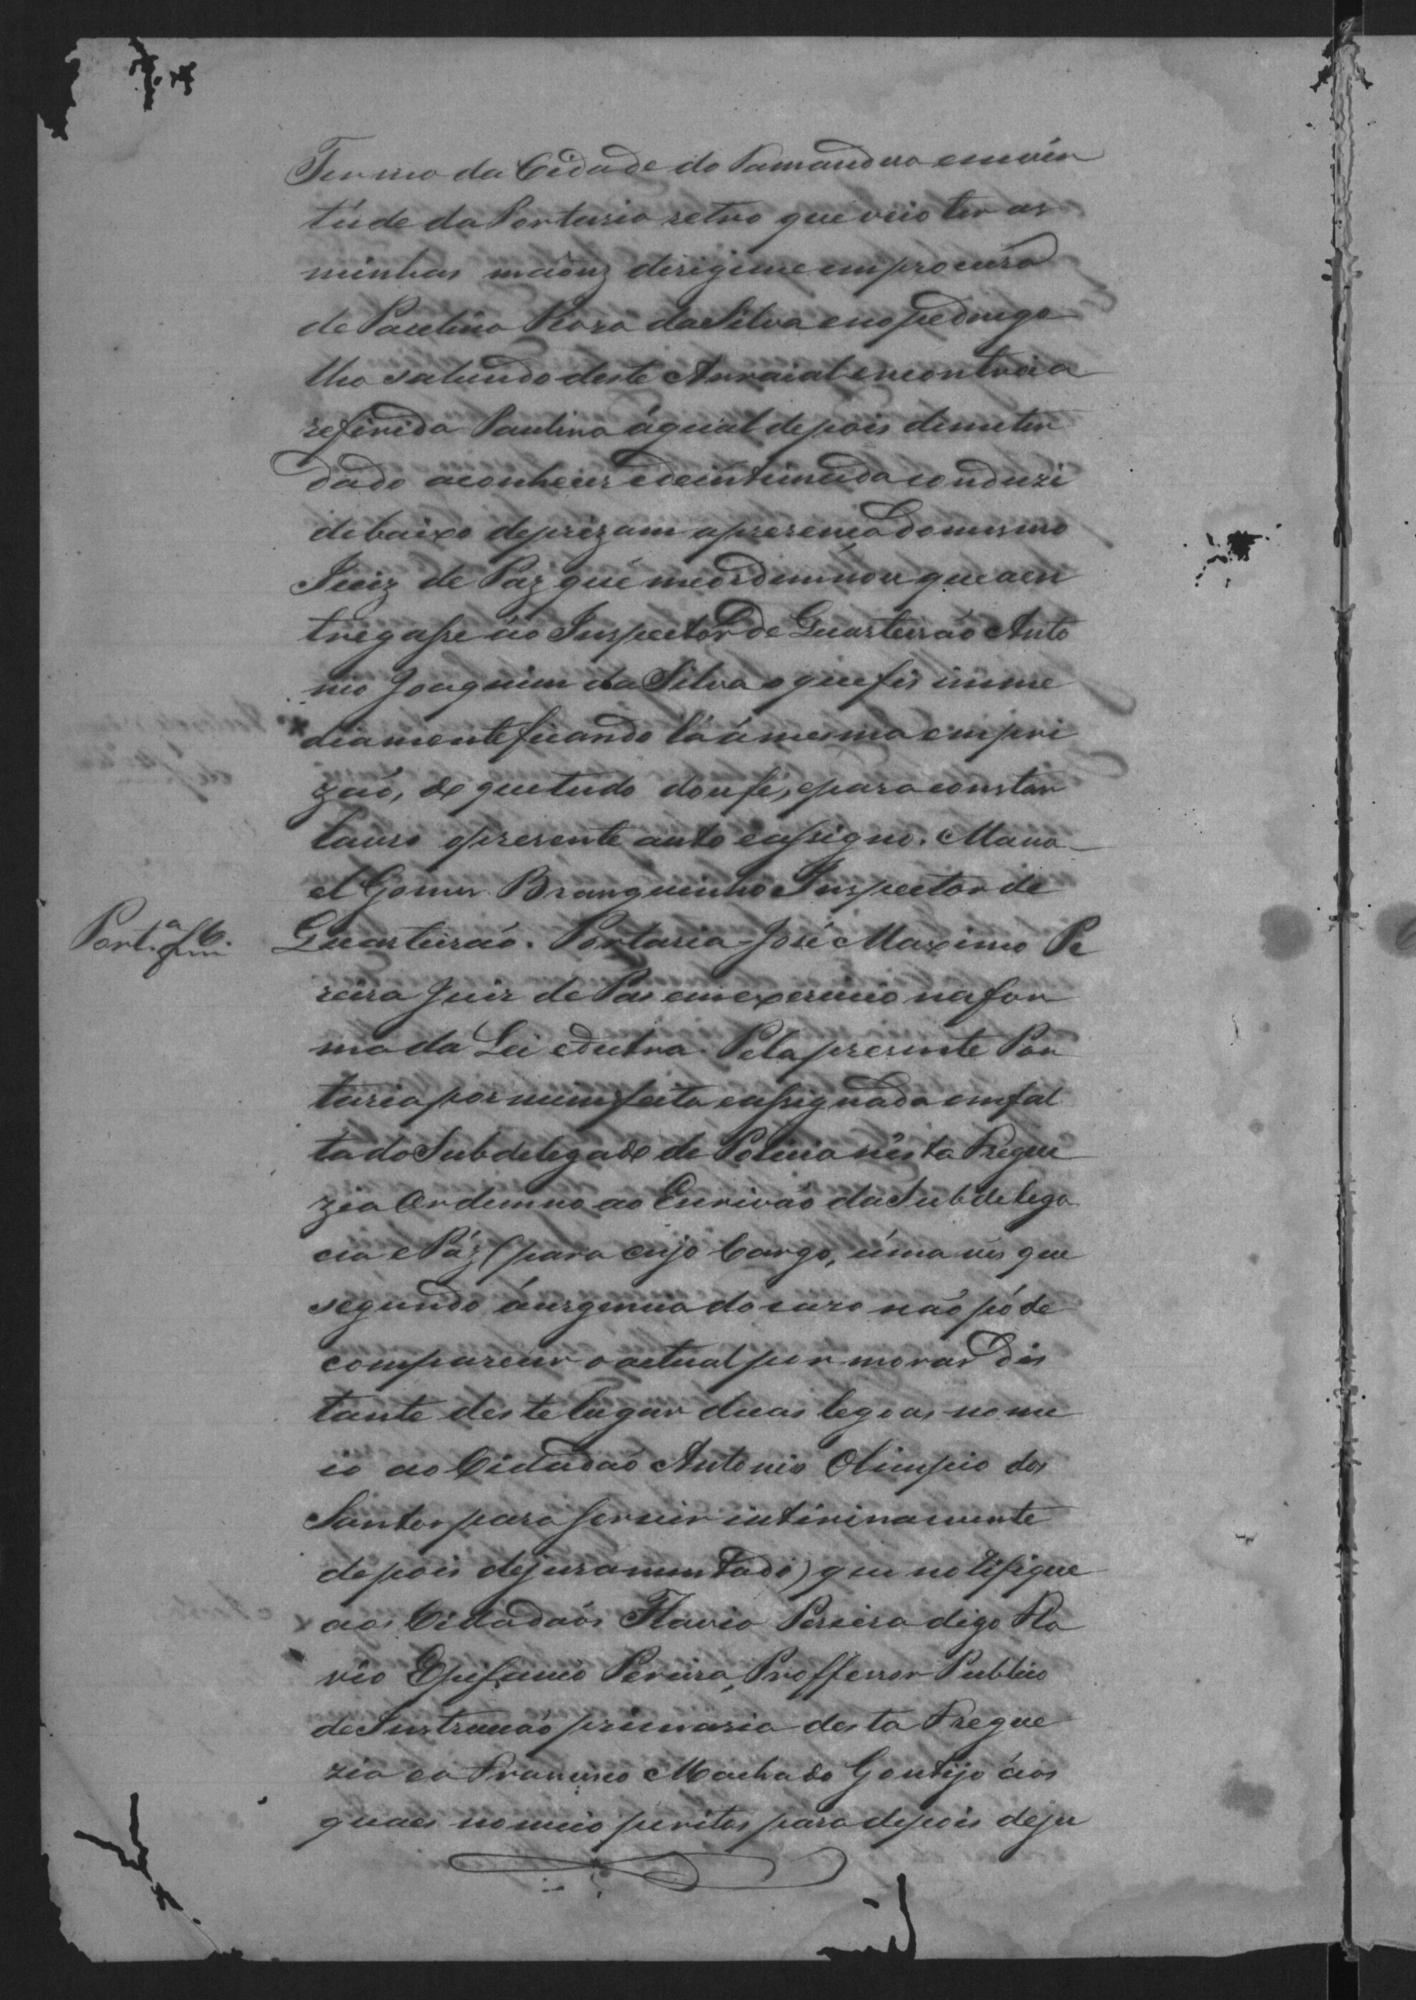 Termo da Cidade do Tamanduá em vir
túde da Portaria retro que veio ter as
minhas maons derigime em procura
de Paulina Roza da Silva e no pedrega
lho sahindo deste Arraial encontrei a
referida Paulina á qual depois de me ter
dado a conhecer e de intimida conduzi
debaixo de prizam a presença do mesmo
Juiz de Paz que me ordennou que a en
tregasse ao Inspector de Quarteirão Anto
nio Joaquim da Silva o que fis imme
diamente ficando lá á mesma em pri
zaõ, de que tudo dou fé, e para constar
lavro o presente auto e assigno. Mano
el Gomes Branquinho Inspector de
Port.ª f 6.
Quarteiraõ. Portaria José Maximo Pe
reira Juiz de Pas em exercicio na for
ma da Lei etcetra. Pela presente Por
taria por mim feita e assignada em fal
ta do Subdelegado de Policia nésta Fregue
zia Ordenno ao Escrivão da Subdelega
cia e Páz (para cujo Cargo, úma ves que
segundo á urgencia do cazo não póde
comparecer o actual por morar dis
tante deste lugar duas legoas nome
io ao Cidadaõ Antonio Olimpio dos
Santos para servir intirinamente
depois de juramentado) que notifique
aos Cidadaõs Flavio Pereira digo Fla
vio Epifanio Pereira, Proffessor Publico
de Instrucaõ primaria desta Fregue
zia e a Francisco Machado Gontijo áos
quaes nomeio peritos para depois de ju